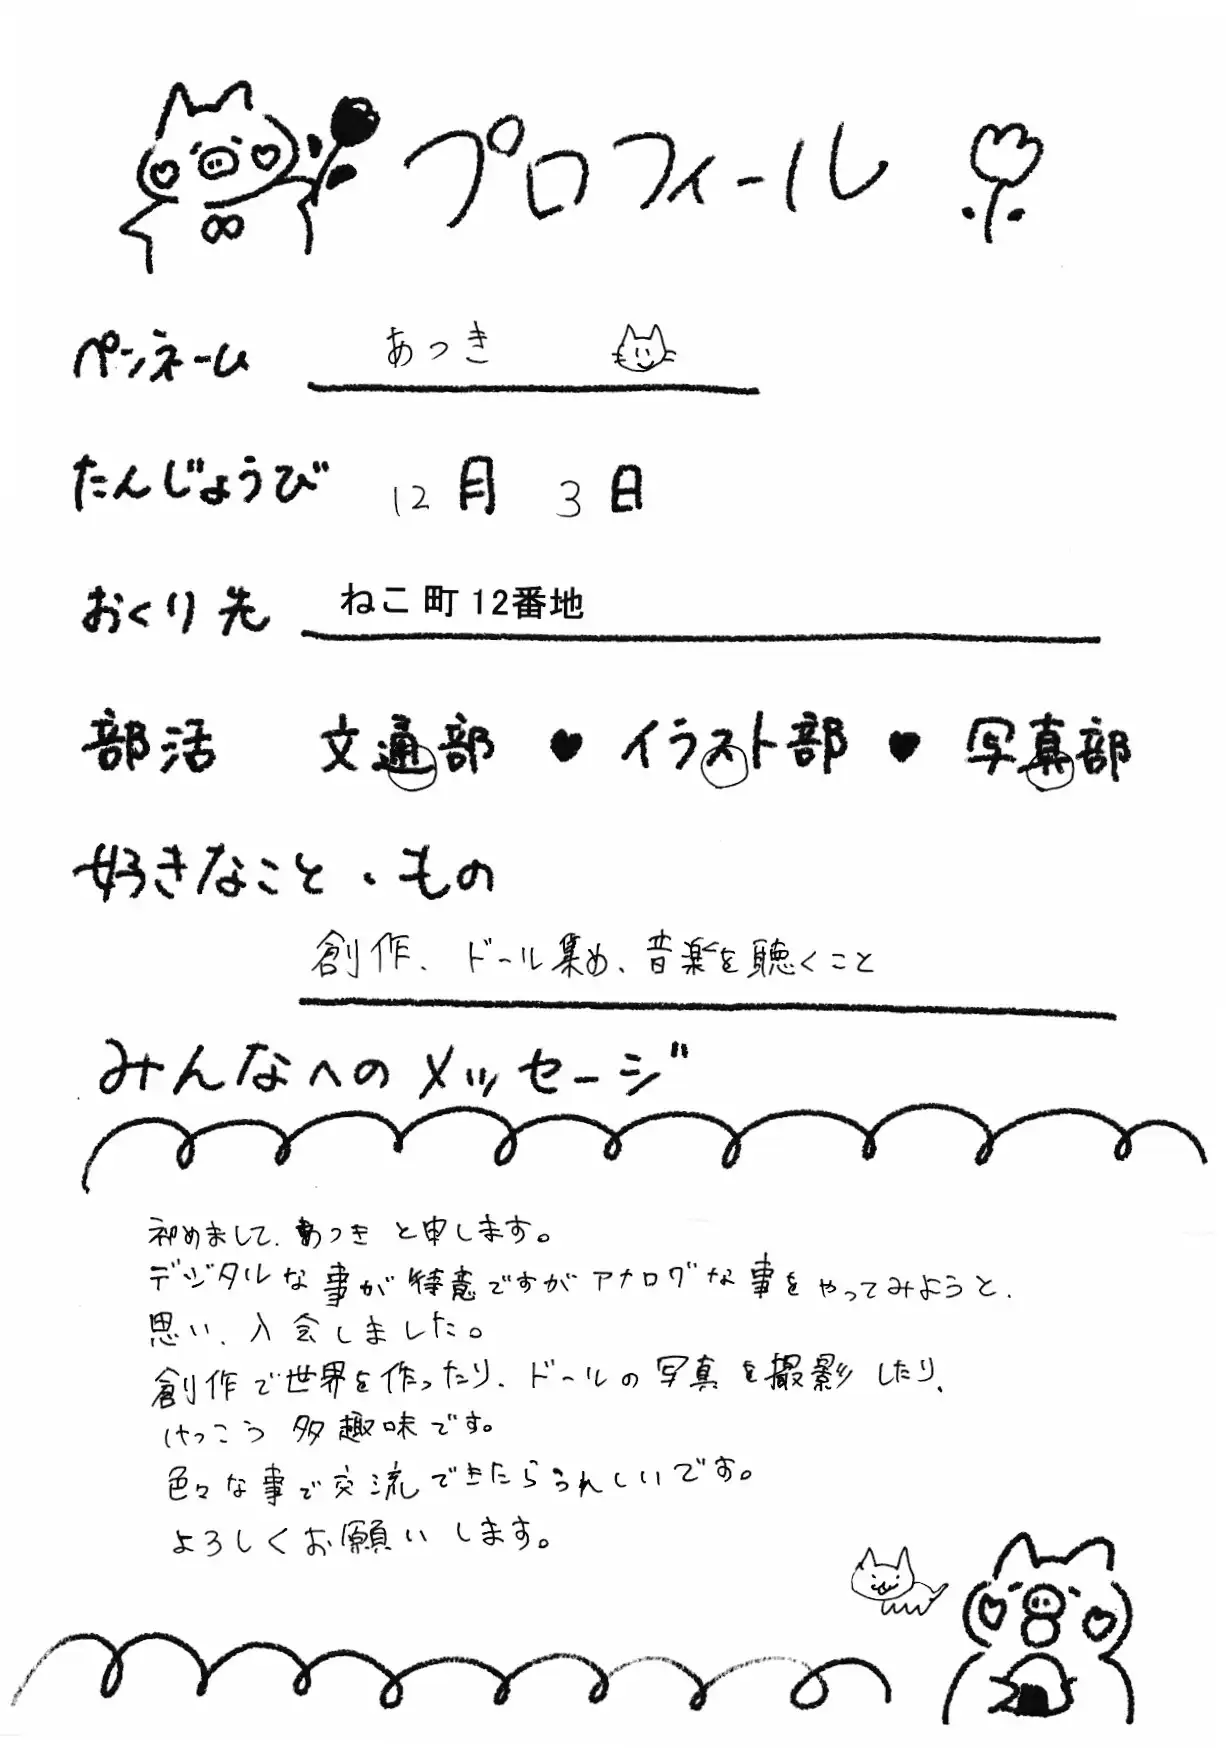 プロフィール
ペンネーム あっき
たんじょうび 12月 3日
おくり先 ねこ町12番地
部活 文通部 ♥ イラスト部 ♥ 写真部
好きなこと・もの
創作、ドール集め、音楽を聴くこと
みんなへのメッセージ
初めまして、あっきと申します。
デジタルな事が得意ですがアナログな事をやってみようと、
思い、入会しました。
創作で世界を作ったり、ドールの写真を撮影したり、
けっこう多趣味です。
色々な事で交流できたらうれしいです。
よろしくお願いします。